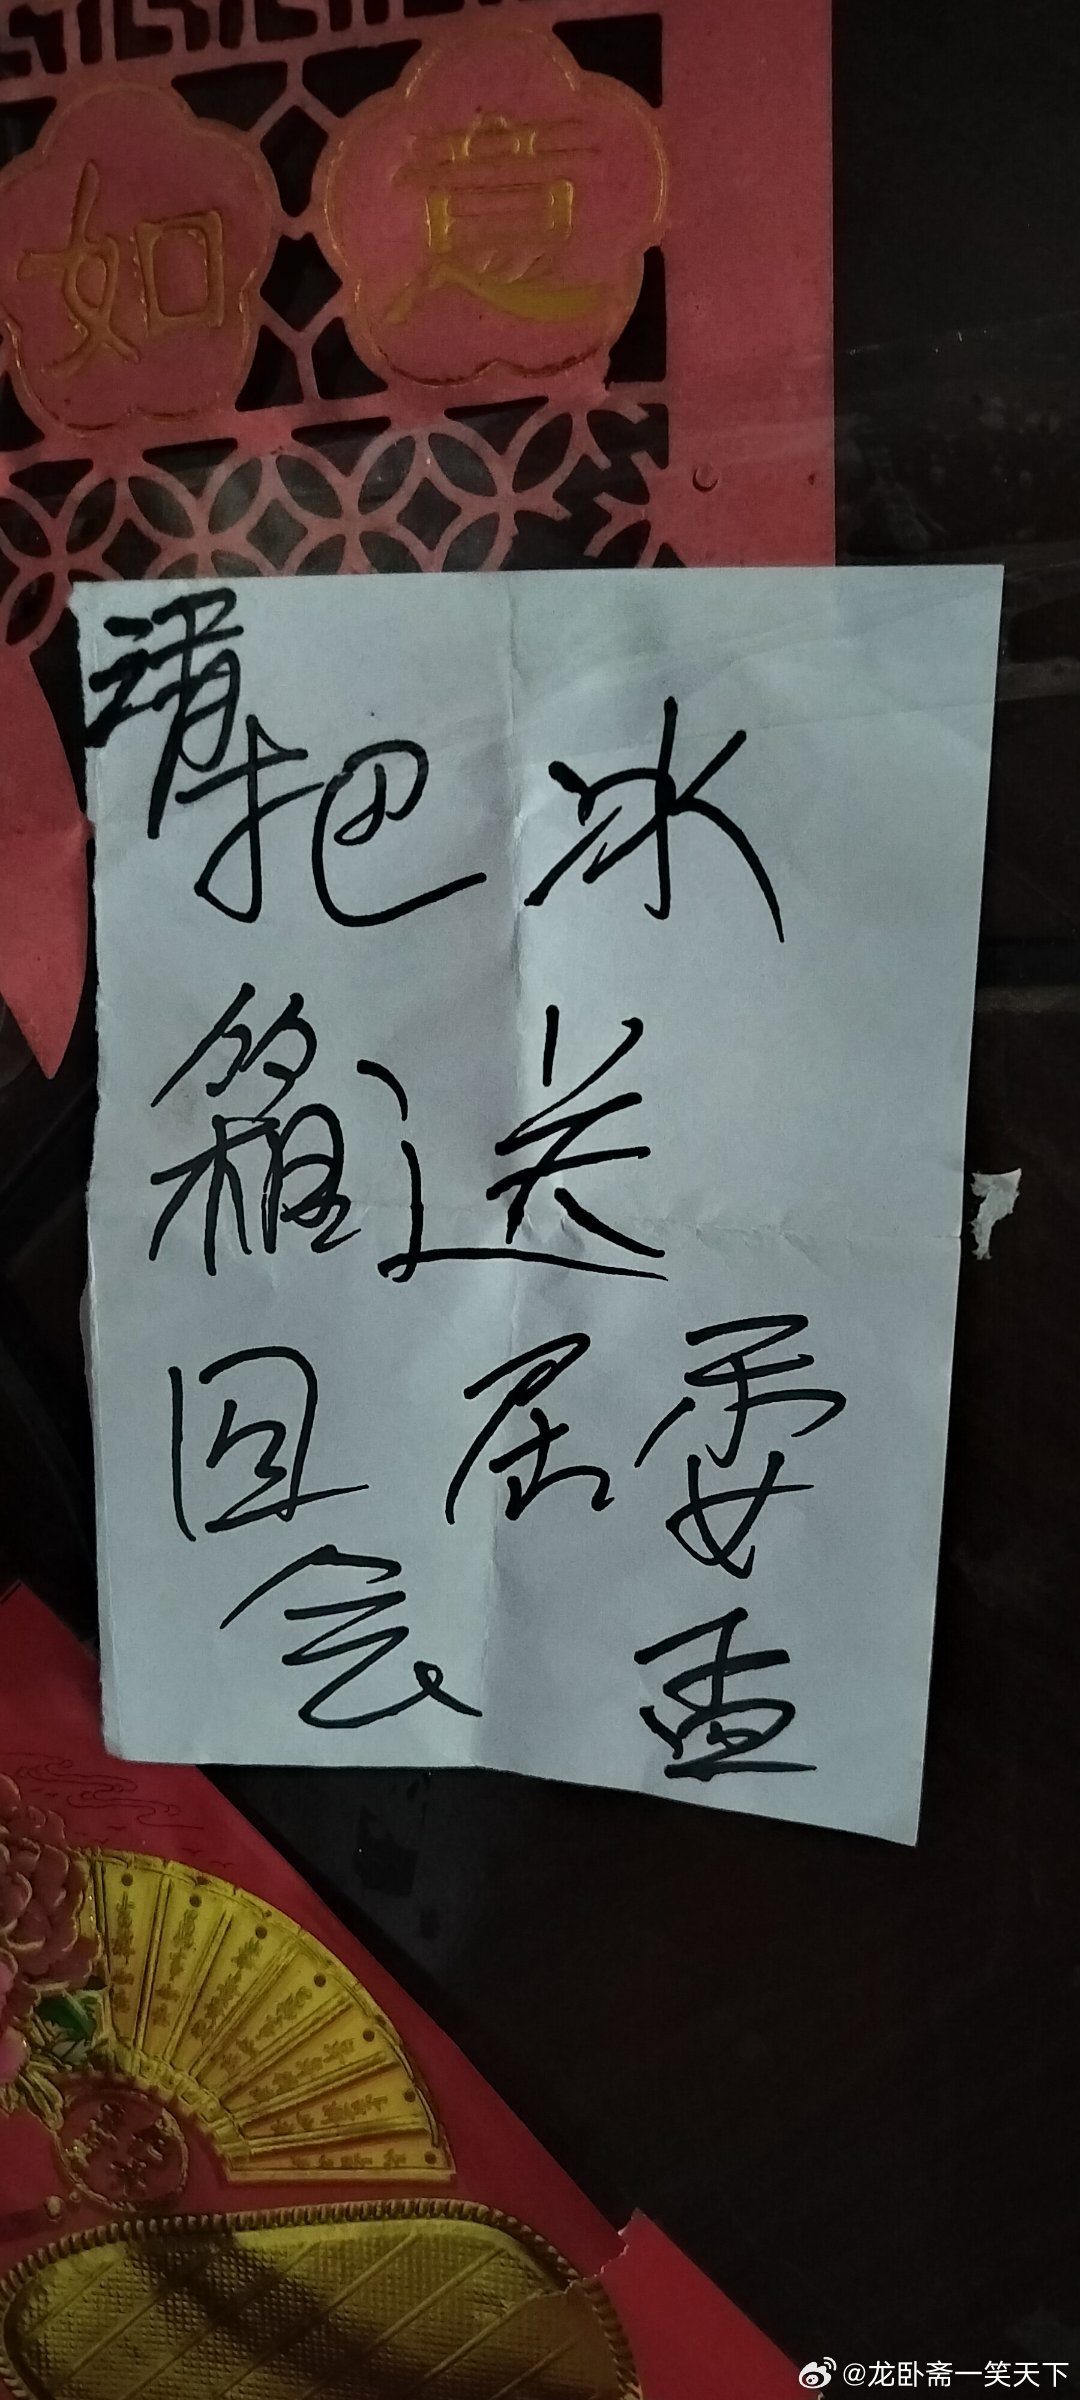 如意
请把冰
箱送
回 居委
会
@龙卧斋一笑天下